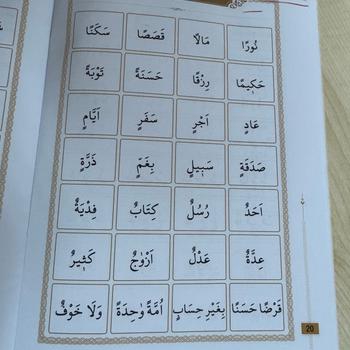 نُورًا مَالًا قَصَصًا سَكَنًا
حَكِيمًا رِزْقًا حَسَنَةً تَوْبَةً
عَادٍ اَجْرٍ سَفَرٍ اَيَّامٍ
صَدَقَةٍ سَبِيلٍ بِغَمٍّ ذَرَّةٍ
اَحَدٌ رُسُلٌ كِتَابٌ فِدْيَةٌ
عِدَّةٌ عَدْلٌ اَزْوٰجٌ كَثِيرٌ
قَرْضًا حَسَنًا بِغَيْرِ حِسَابٍ اُمَّةً وٰحِدَةً وَلَا خَوْفٌ
20